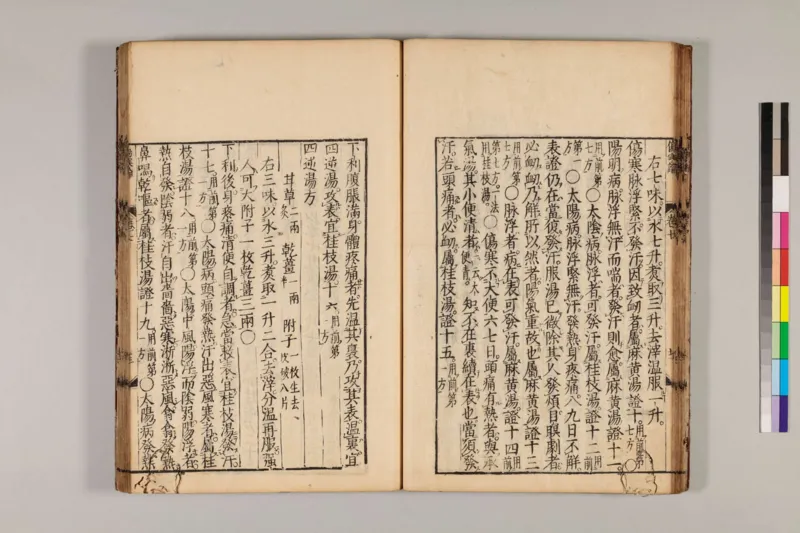 右七味以水七升煑取三升去滓温服一升
傷寒脉浮緊不發汗因致衂者屬麻黄湯證十用前第七方○
陽明病脉浮無汗而喘者發汗則愈屬麻黄湯證十一
用前第七方○太陰病脉浮者可發汗屬桂枝湯證十二用前
第一方○太陽病脉浮緊無汗發熱身疼痛八九日不解
表證仍在當復發汗服湯已微除其人發煩目瞑劇者
必衂衂乃解所以然者陽氣重故也屬麻黄湯證十三
用前第七方○脉浮者病在表可發汗屬麻黄湯證十四用前
第七方一法用桂枝湯○傷寒不大便六七日頭痛有熱者與承
氣湯其小便清者知不在裏續在表也當須發
汗若頭痛者必衂屬桂枝湯證十五用前第一方
下利腹脹滿身體疼痛者先温其裏乃攻其表温裏宜
四逆湯攻表宜桂枝湯十六用前第一方
四逆湯方
甘草二兩炙 乾薑一兩半 附子一枚生去皮破八片
右三味以水三升煑取一升二合去滓分温再服強
人可大附子一枚乾薑三兩○
下利後身疼痛清便自調者急當救表宜桂枝湯發汗
十七用前第一方○太陽病頭痛發熱汗出惡風寒者屬桂
枝湯證十八用前第一方○太陽中風陽浮而陰弱陽浮者
熱自發陰弱者汗自出嗇嗇惡寒淅淅惡風翕翕發熱
鼻鳴乾嘔者屬桂枝湯證十九用前第一方○太陽病發熱